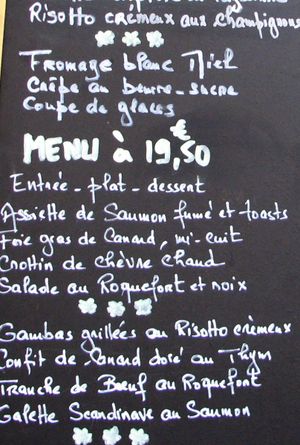 Risotto crèmeux aux champignons
Fromage blanc Miel
Crêpe au beurre-sucre
Coupe de glaces
MENU à 19,50 €
Entrée - plat - dessent
Assiette de Saumon fumé et toasts
Foie gras de Canard, mi-cuit
Crottin de chèvre chaud
Salade au Roquefort et noix
Gambas grillées au Risotto crèmeux
Confit de Canard doré au Thym
Tranche de Bœuf au Roquefort
Galette Scandinave au Saumon